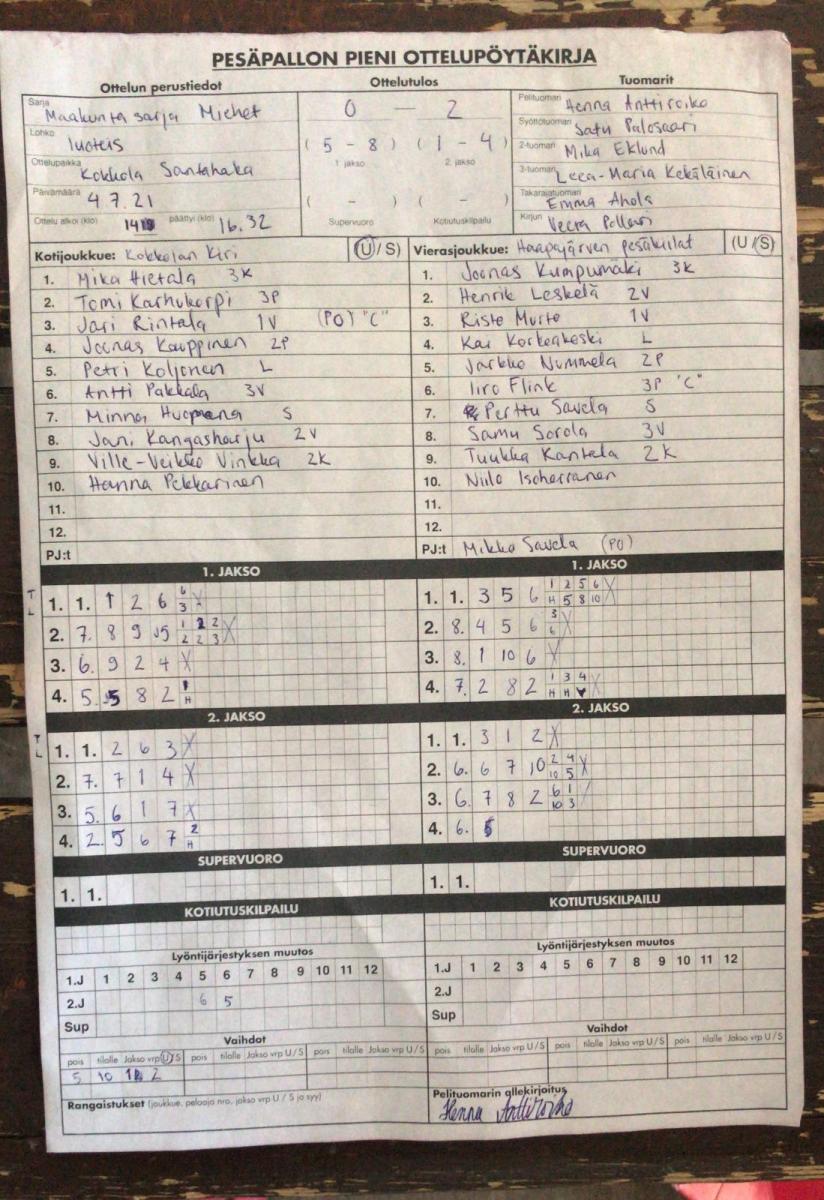 PESÄPALLON PIENI OTTELUPÖYTÄKIRJA
Ottelun perustiedot Ottelutulos Tuomarit
Sarja Maakunta sarja Miehet
Lohko luoteis
Ottelupaikka Kokkola Santahaka
Päivämäärä 4 7.21
Ottelu alkoi (klo) päättyi (klo) 16.32
0 — 2
( 5 - 8 ) ( 1 - 4 )
1. jakso 2. jakso
( - ) ( - )
Supervuoro Kotiutuskilpailu
Pelituomari Henna Anttiroiko
Syöttötuomari Satu Palosaari
2-tuomari Mika Eklund
3-tuomari Leea-Maria Kekäläinen
Takarajatuomari Emma Ahola
Kirjuri Veera Pollari
Kotijoukkue: Kokkolan Kiri (U / S)
1. Mika Hietala 3K
2. Tomi Karhukorpi 3P
3. Jari Rintala 1V (PO) "C"
4. Joonas Kauppinen 2P
5. Petri Koljonen L
6. Antti Pakkala 3V
7. Minna S
8. Jani Kangasharju 2V
9. Ville-Veikko Vinkka 2K
10. Hanna Pekkarinen
11.
12.
PJ:t
Vierasjoukkue: Haapajärven pesäkiilat (U / S)
1. Joonas Kumpumäki 3K
2. Henrik Leskelä 2V
3. Riste Murto 1V
4. Kai Korkeakoski L
5. Jarkko Nummela 2P
6. Iiro Flink 3P "C"
7. Perttu Savela S
8. Samu Sorola 3V
9. Tuukka Kantela 2K
10. Niilo Isoherranen
11.
12.
PJ:t Mikko Savela (PO)
1. JAKSO
1. 1. 1 2 6 6 3 X
2. 7. 8 9 5 1 2 2 2 2 3 X
3. 6. 9 2 4 X
4. 5. 5 8 2 1 H
1. JAKSO
1. 1. 3 5 6 1 2 5 6 H 5 8 10 X
2. 8. 4 5 6 3 6 X
3. 8. 1 10 6 X
4. 7. 2 8 2 1 3 4 H H X
2. JAKSO
1. 1. 2 6 3 X
2. 7. 7 1 4 X
3. 5. 6 1 7 X
4. 2. 5 6 7 2 H
2. JAKSO
1. 1. 3 1 2 X
2. 6. 6 7 10 2 4 10 5 X
3. 6. 7 8 2 6 1 10 3 /
4. 6.
SUPERVUORO
1. 1.
SUPERVUORO
1. 1.
KOTIUTUSKILPAILU
KOTIUTUSKILPAILU
Lyöntijärjestyksen muutos
1.J 1 2 3 4 5 6 7 8 9 10 11 12
2.J 6 5
Sup
Lyöntijärjestyksen muutos
1.J 1 2 3 4 5 6 7 8 9 10 11 12
2.J
Sup
Vaihdot
pois tilalle Jakso vrp U / S pois tilalle Jakso vrp U / S pois tilalle Jakso vrp U / S
5 10 2
Vaihdot
pois tilalle Jakso vrp U / S pois tilalle Jakso vrp U / S pois tilalle Jakso vrp U / S
Rangaistukset (joukkue, pelaaja nro, jakso vrp U / S ja syy)
Pelituomarin allekirjoitus
Henna Anttiroiko